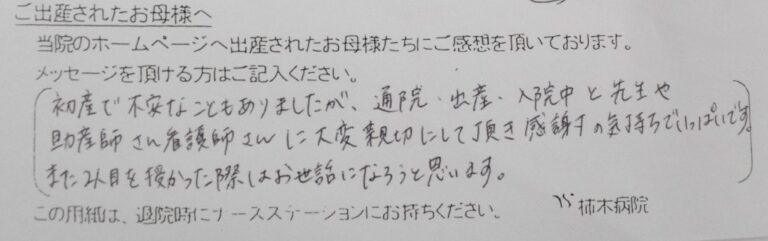 ご出産されたお母様へ
当院のホームページへ出産されたお母様たちにご感想を頂いております。
メッセージを頂ける方はご記入ください。
初産で不安なこともありましたが、通院・出産・入院中と先生や
助産師さん看護師さんに大変親切にして頂き感謝の気持ちでいっぱいです。
また2人目を授かった際はお世話になろうと思います。
この用紙は、退院時にナースステーションにお持ちください。
柿木病院